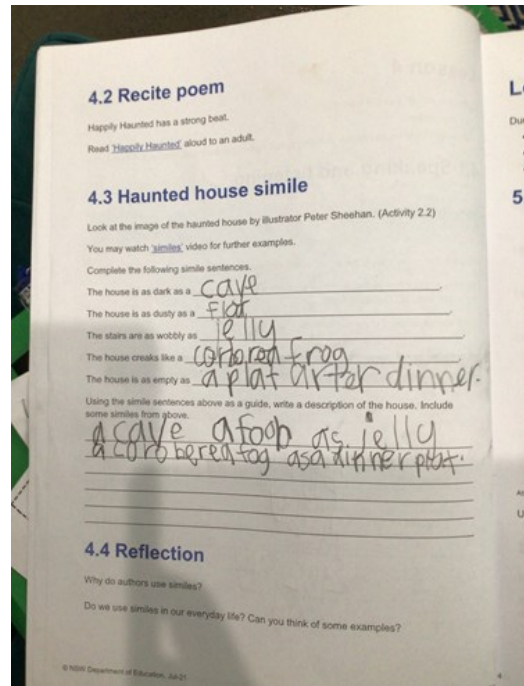 4.2 Recite poem
Happily Haunted has a strong beat.
Read 'Happily Haunted' aloud to an adult.
4.3 Haunted house simile
Look at the image of the haunted house by illustrator Peter Sheehan. (Activity 2.2)
You may watch 'similes' video for further examples.
Complete the following simile sentences.
The house is as dark as a cave
The house is as dusty as a
The stairs are as wobbly as jelly
The house creaks like a frog
The house is as empty as a plat arfter dinner.
Using the similie sentences above as a guide, write a description of the house. Include
some similes from above.
a cave as jelly
a as a dinner
4.4 Reflection
Why do authors use similes?
Do we use similes in our everyday life? Can you think of some examples?
© NSW Department of Education, Jul-21
4
L
Du
5